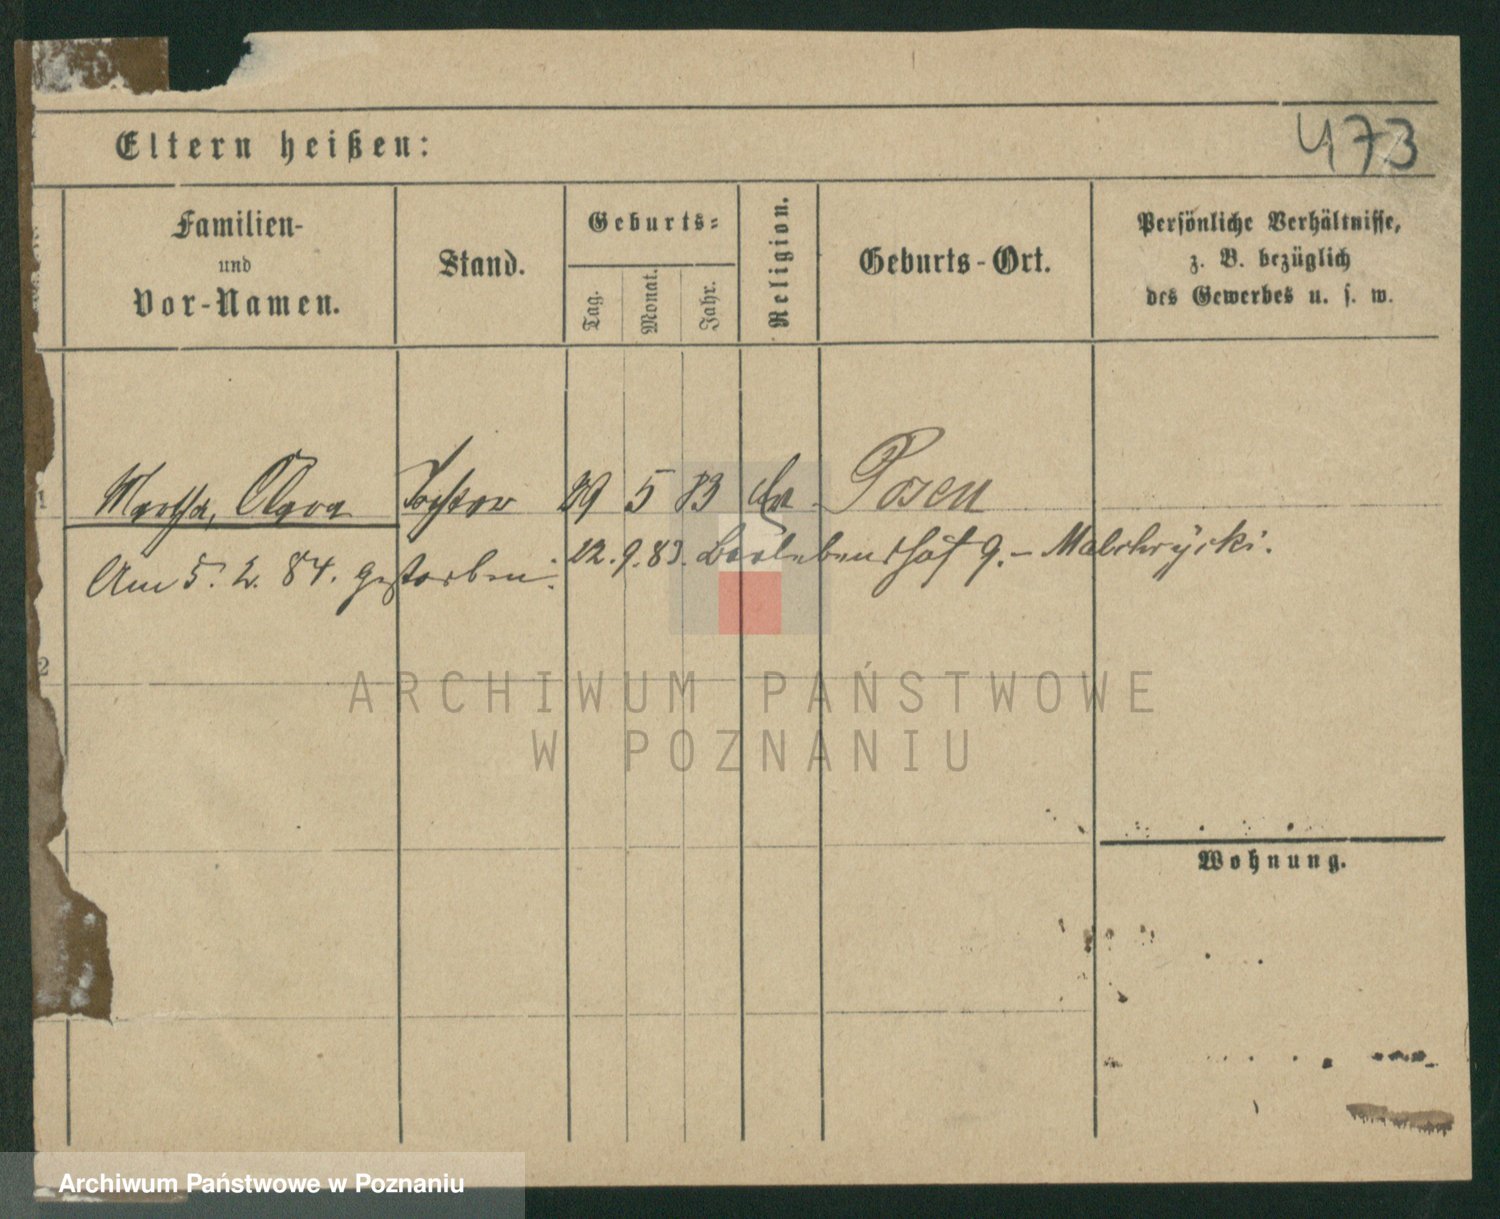 Eltern heißen:
473
Familien-
und
Vor-Namen.
Stand.
Geburts-
Tag.
Monat.
Jahr.
Religion.
Geburts-Ort.
Persönliche Verhältnisse,
z. B. bezüglich
des Gewerbes u. s. w.
1 Martha, Clara Tochter 29 5 83 Posen
22. 9. 83. 9. – Malchrycki.
Am 5. 2. 84. gestorben.
2
ARCHIWUM PAŃSTWOWE
W POZNANIU
Wohnung.
Archiwum Państwowe w Poznaniu